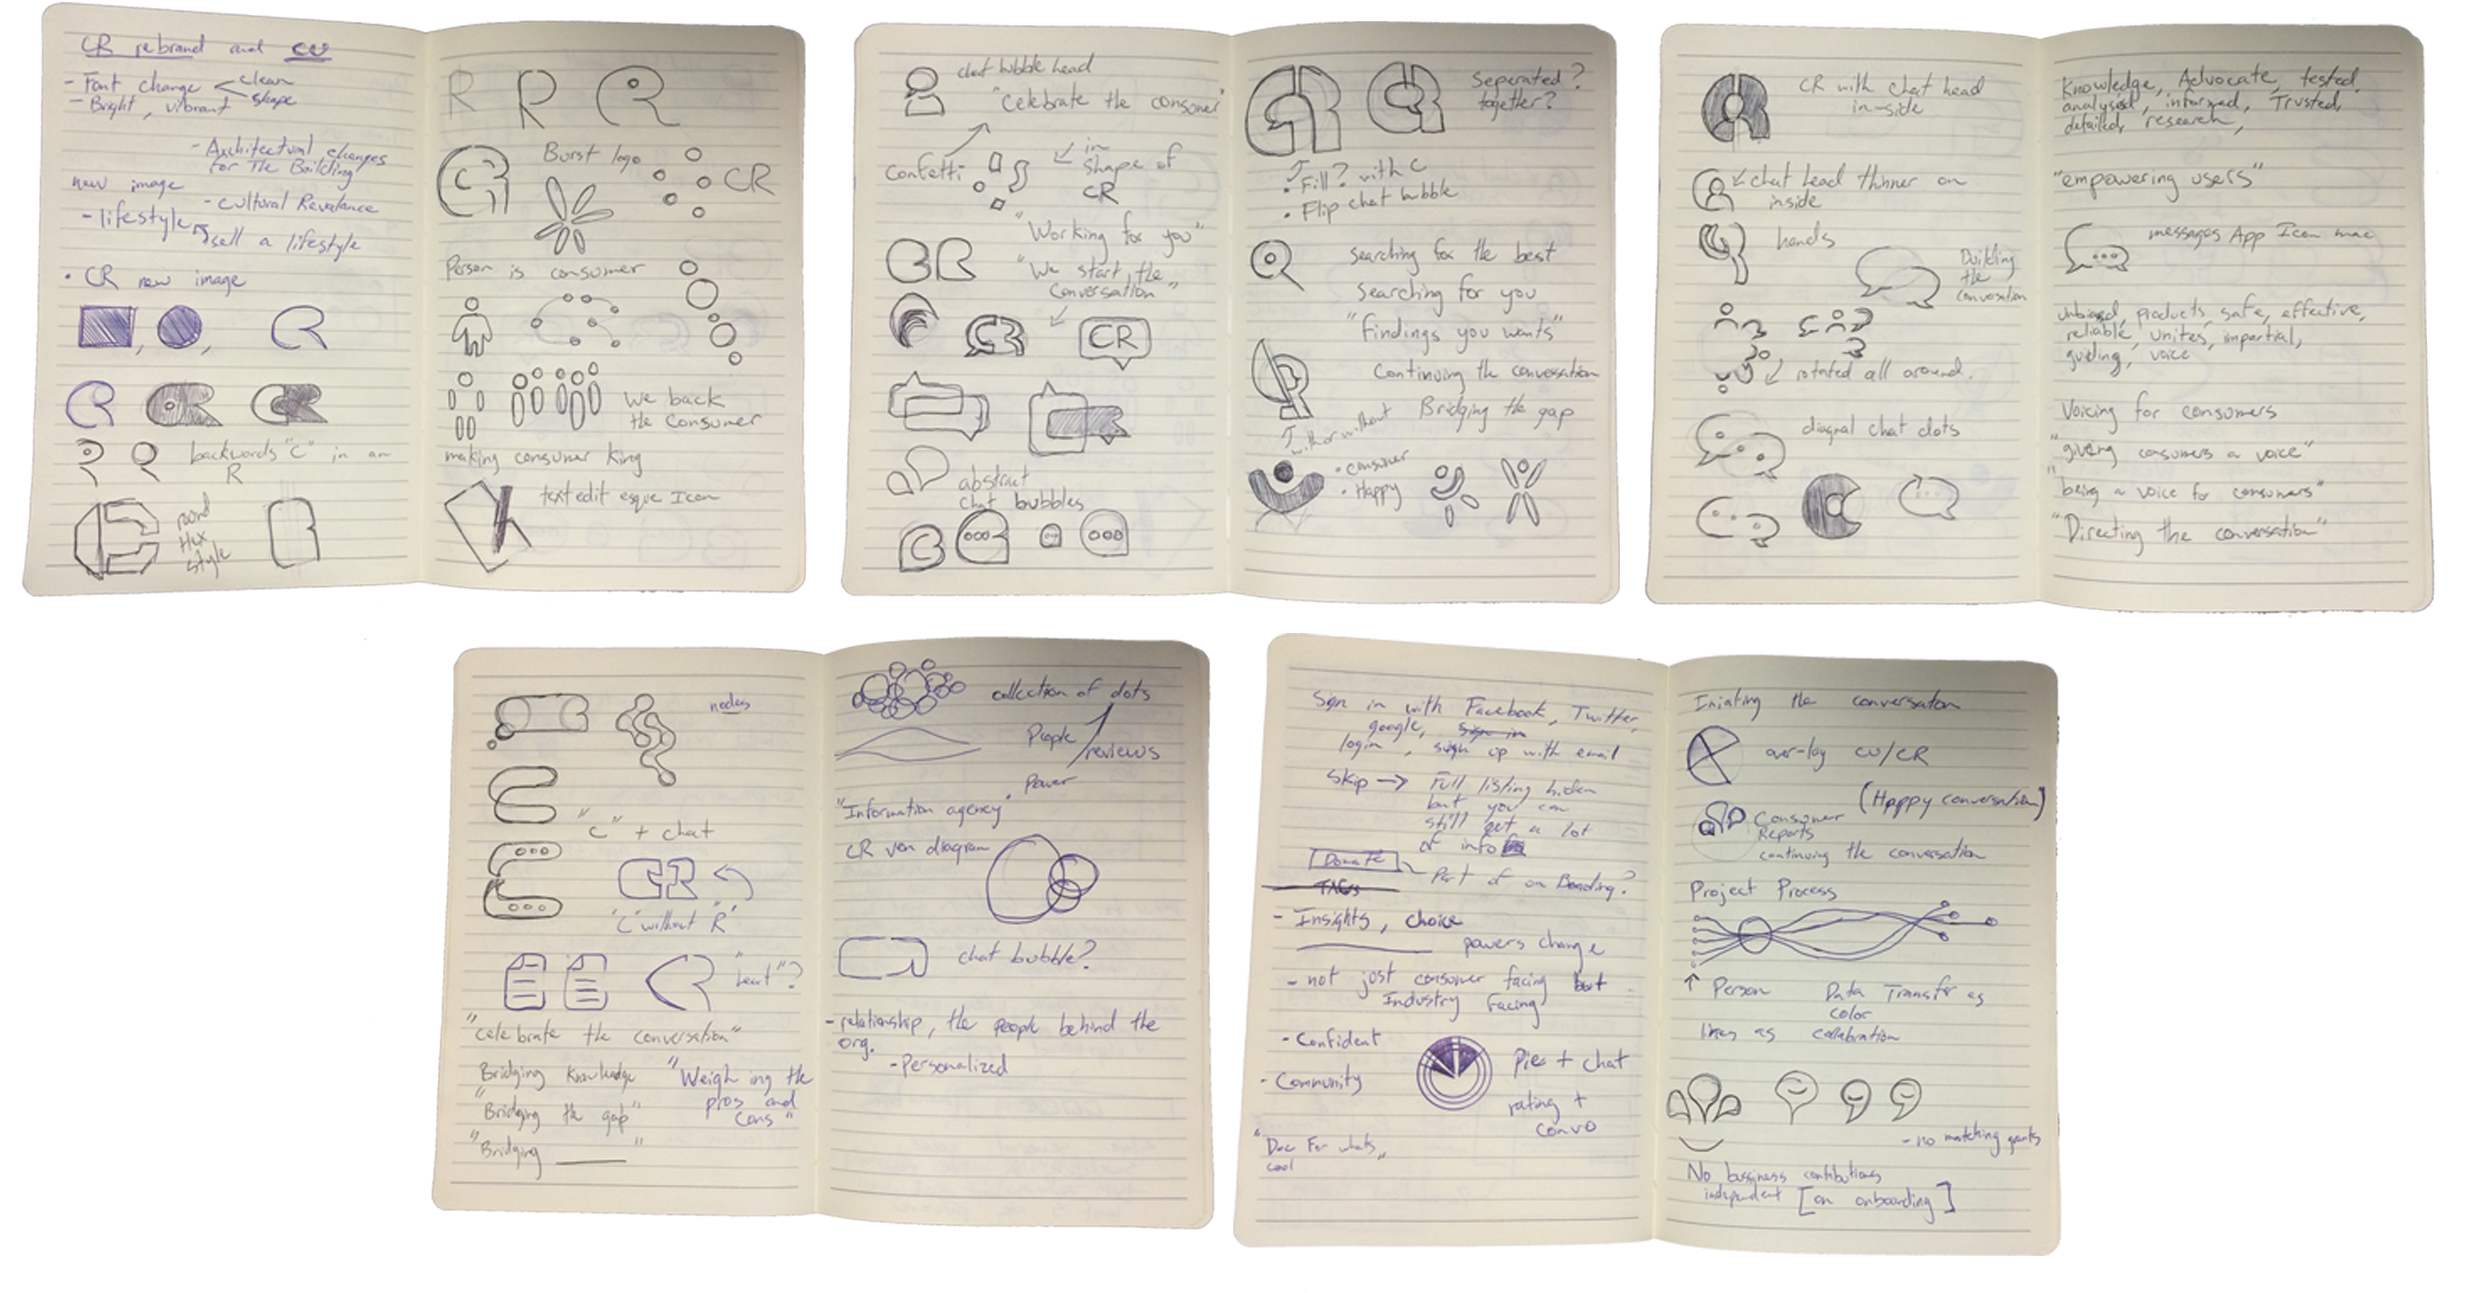 CR rebrand and CU
- Font change
clean
shape
- Bright, vibrant
- Architectural changes
for The Building
new image
- Cultural Revalance
- lifestyle
sell a lifestyle
• CR new image
backwords "C" in an
R
round
Hex
style
R R
Burst logo
CR
Person is consumer
We back
the Consumer
making consumer king
text edit esque Icon
chat bubble head
"Celebrate the consoner"
Confetti
in
shape of
CR
"Working for you"
"We start the
Conversation"
CR
CR
abstract
chat bubbles
Seperated?
together?
• Fill? with C
• Flip chat bubble
searching for the best
Searching for you
"Findings you wants"
Continuing the conversation
Bridging the gap
with or without
• consumer
• Happy
CR with chat head
in-side
chat head thinner on
inside
hands
Building
the
conversation
rotated all around.
diagnal chat dots
Knowledge, Advocate, tested,
analysisd, informed, Trusted,
detailed, research,
"empowering users"
messages App Icon mac
unbiased, products, safe, effective,
reliable, unites, impartial,
guiding, voice
Voicing for consumers
"giving consumers a voice"
"being a voice for consumers"
"Directing the conversation"
nodes
"C" + chat
"C" without "R"
"heart"?
"celebrate the conversation"
Bridging Knowledge
"Bridging the gap"
"Bridging ______"
"Weighing the
pros and
cons"
collection of dots
People
reviews
• Power
"Information agency"
CR ven diagram
chat bubble?
- relationship, the people behind the
org.
- Personalized
Sign in with Facebook, Twitter,
google, sign in
login, sign up with email
Skip → Full listing hiden
but you can
still get a lot
of info
Donate
Part of on Boading?
TAGs
- Insights, choice
______ powers change
- not just consumer facing but
Industry facing
- Confident
- Community
Pies + chat
rating +
convo
"Doc For whats
cool"
Iniating the conversaton
over-lay CU/CR
(Happy conversation)
Consumer
Reports
continuing the conversation
Project Process
↑ Person
Data Transfer as
color
lines as collabration
- no matching gants
No bussiness contibutions
independent [on onboarding]